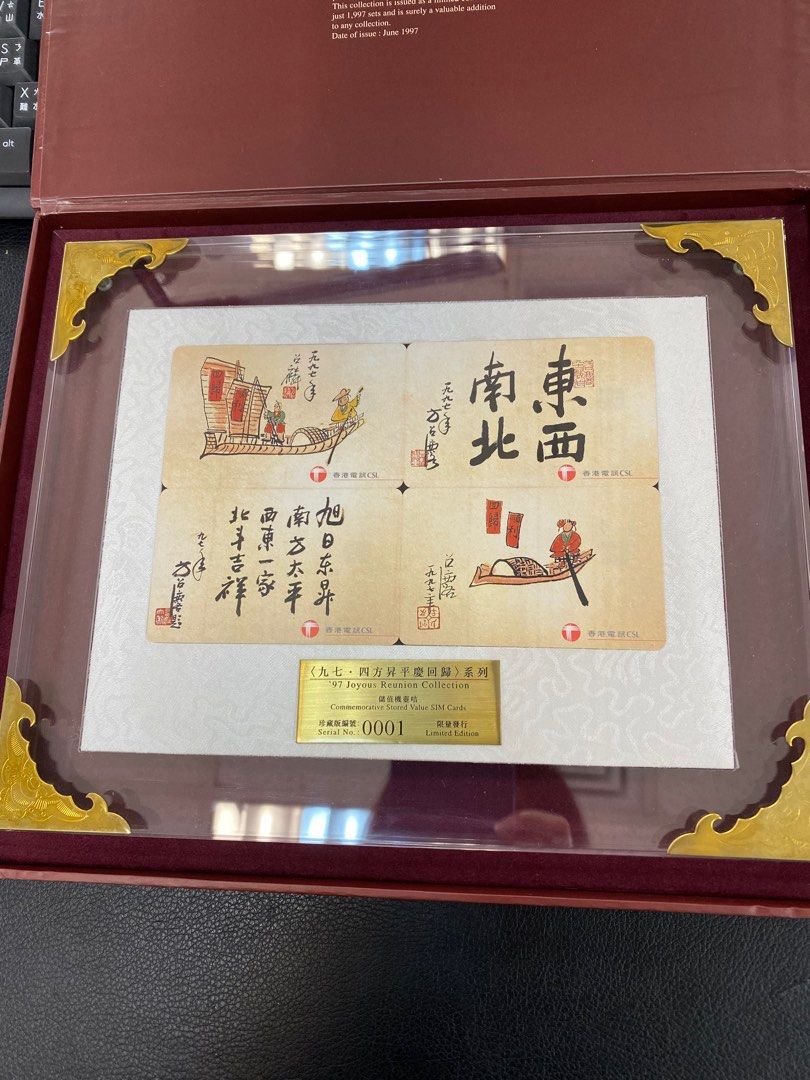 This collection is issued as a limited
just 1,997 sets and is surely a valuable addition
to any collection.
Date of issue : June 1997
山
S
尸
X
難
alt
一九九七年
香港電訊CSL
東西
南北
一九九七年
香港電訊CSL
旭日东昇
南方太平
西東一家
北斗吉祥
九七年
香港電訊CSL
回歸
一九九七年
香港電訊CSL
〈九七・四方昇平慶回歸〉系列
'97 Joyous Reunion Collection
儲值機靈咭
Commemorative Stored Value SIM Cards
珍藏版編號: 0001 限量發行
Serial No.: Limited Edition